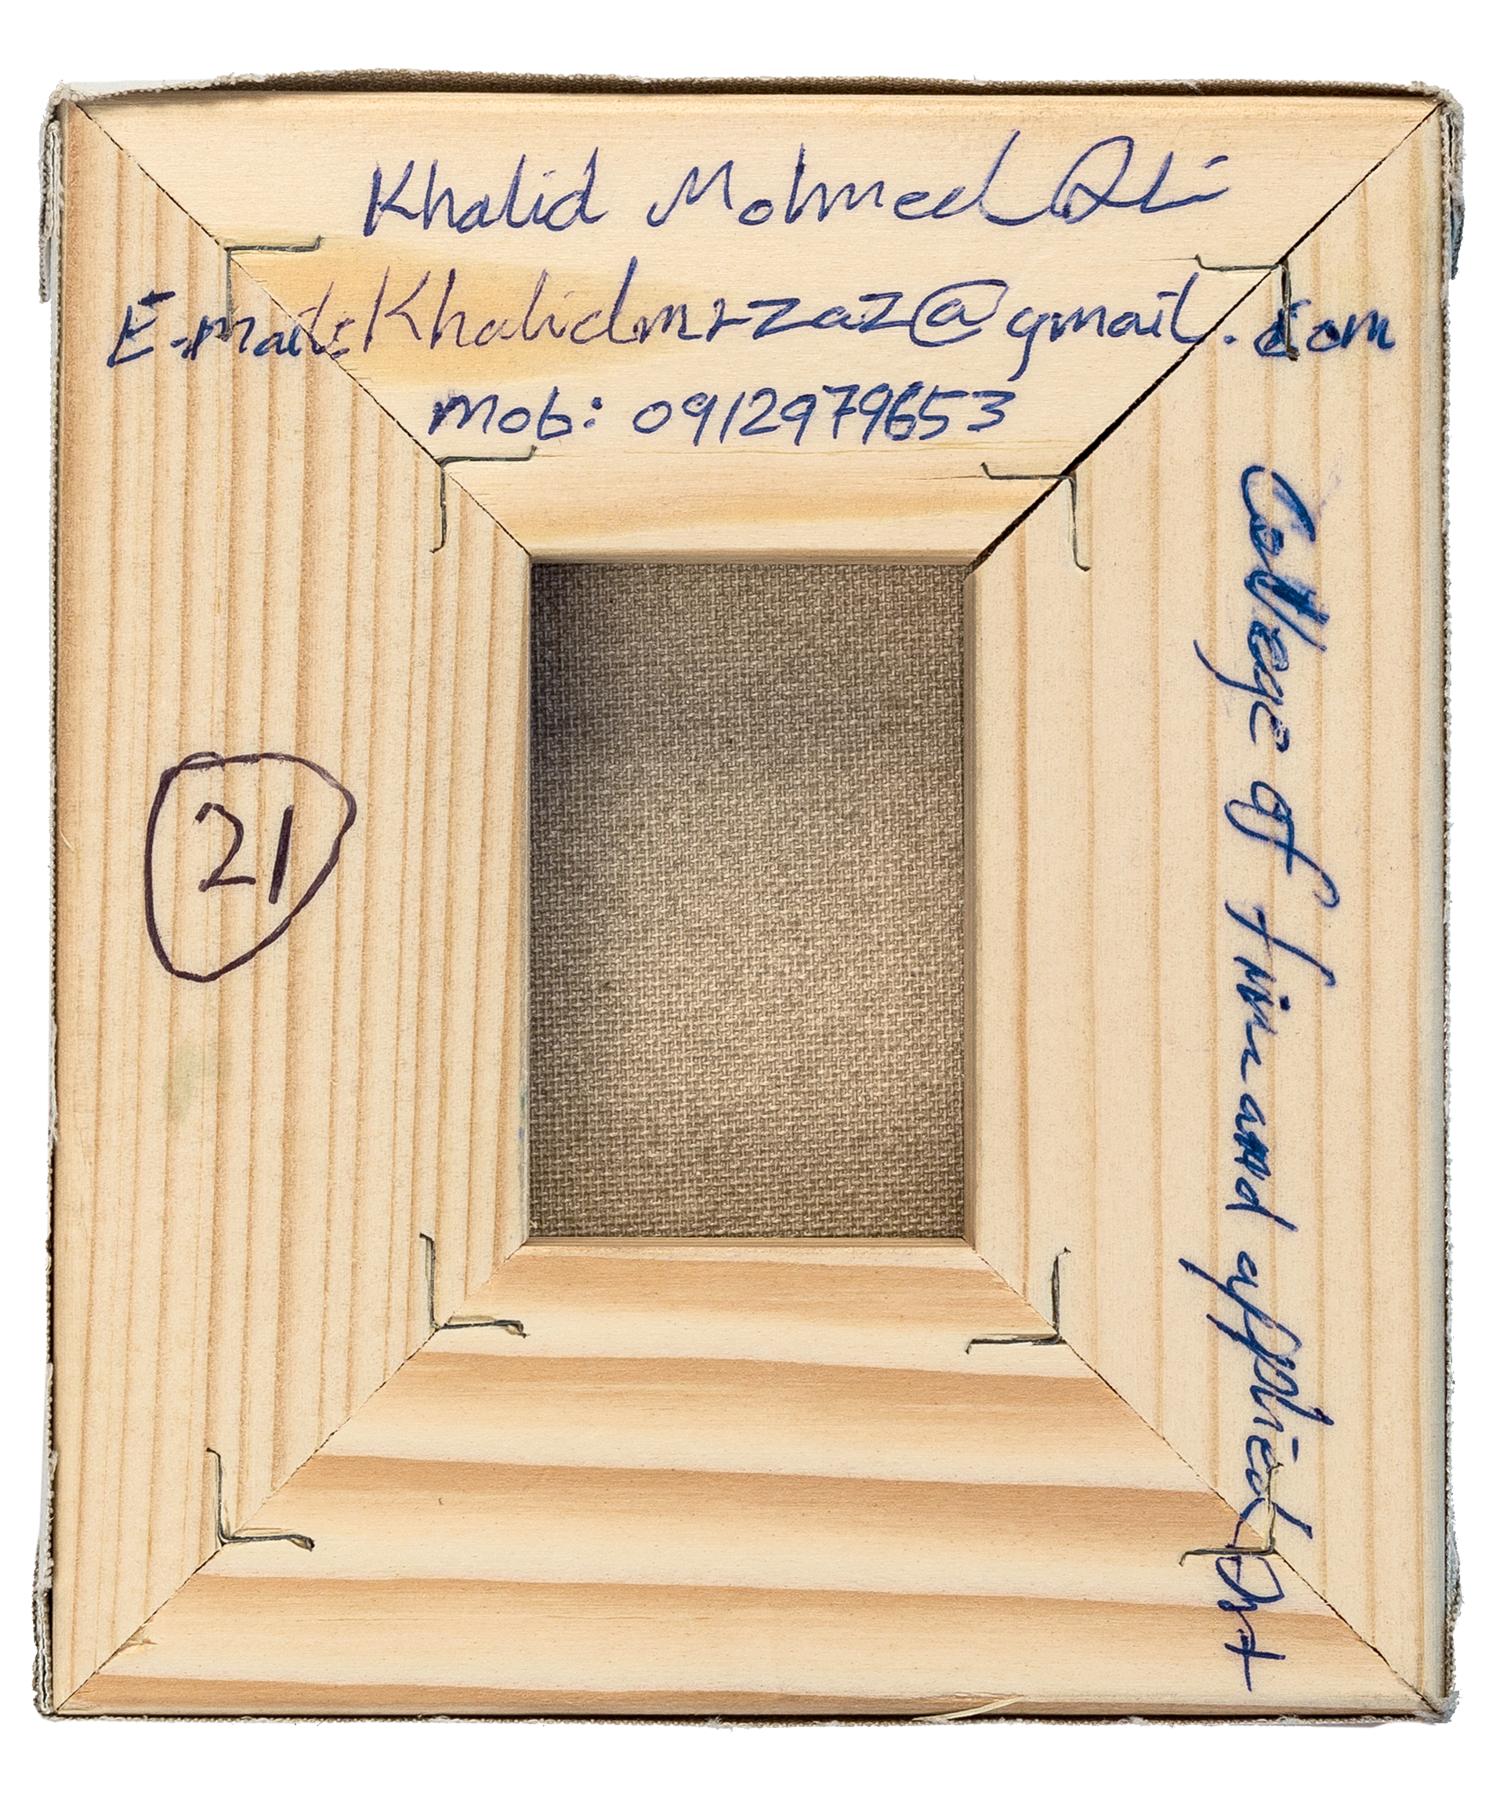 Khalid Mohmed Ali
E-mail: Khalidmrzaz@gmail.com
Mob: 0912979653
21
College of fine and applied Art